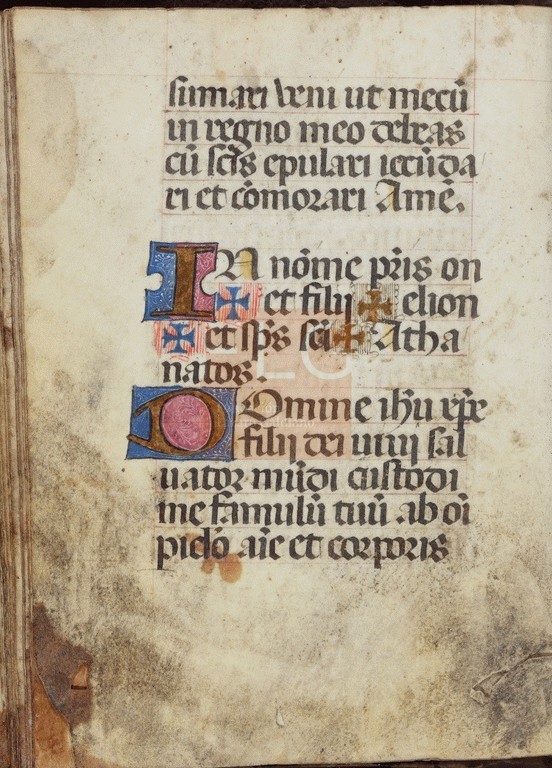 sumari veni ut mecū
in regno meo debeas
cū scīs epulari iecūda
ri et cōmorari Amē.
IN nōme pr̄is on
✠ et filij ✠ elion
✠ et sp̄s sc̄i ✠ Atha
natos.
Domine ih̄u xp̄e
filij dei uiui sal
uator mūdi custodi
me famulū tuū ab oī
piclō aīe et corporis